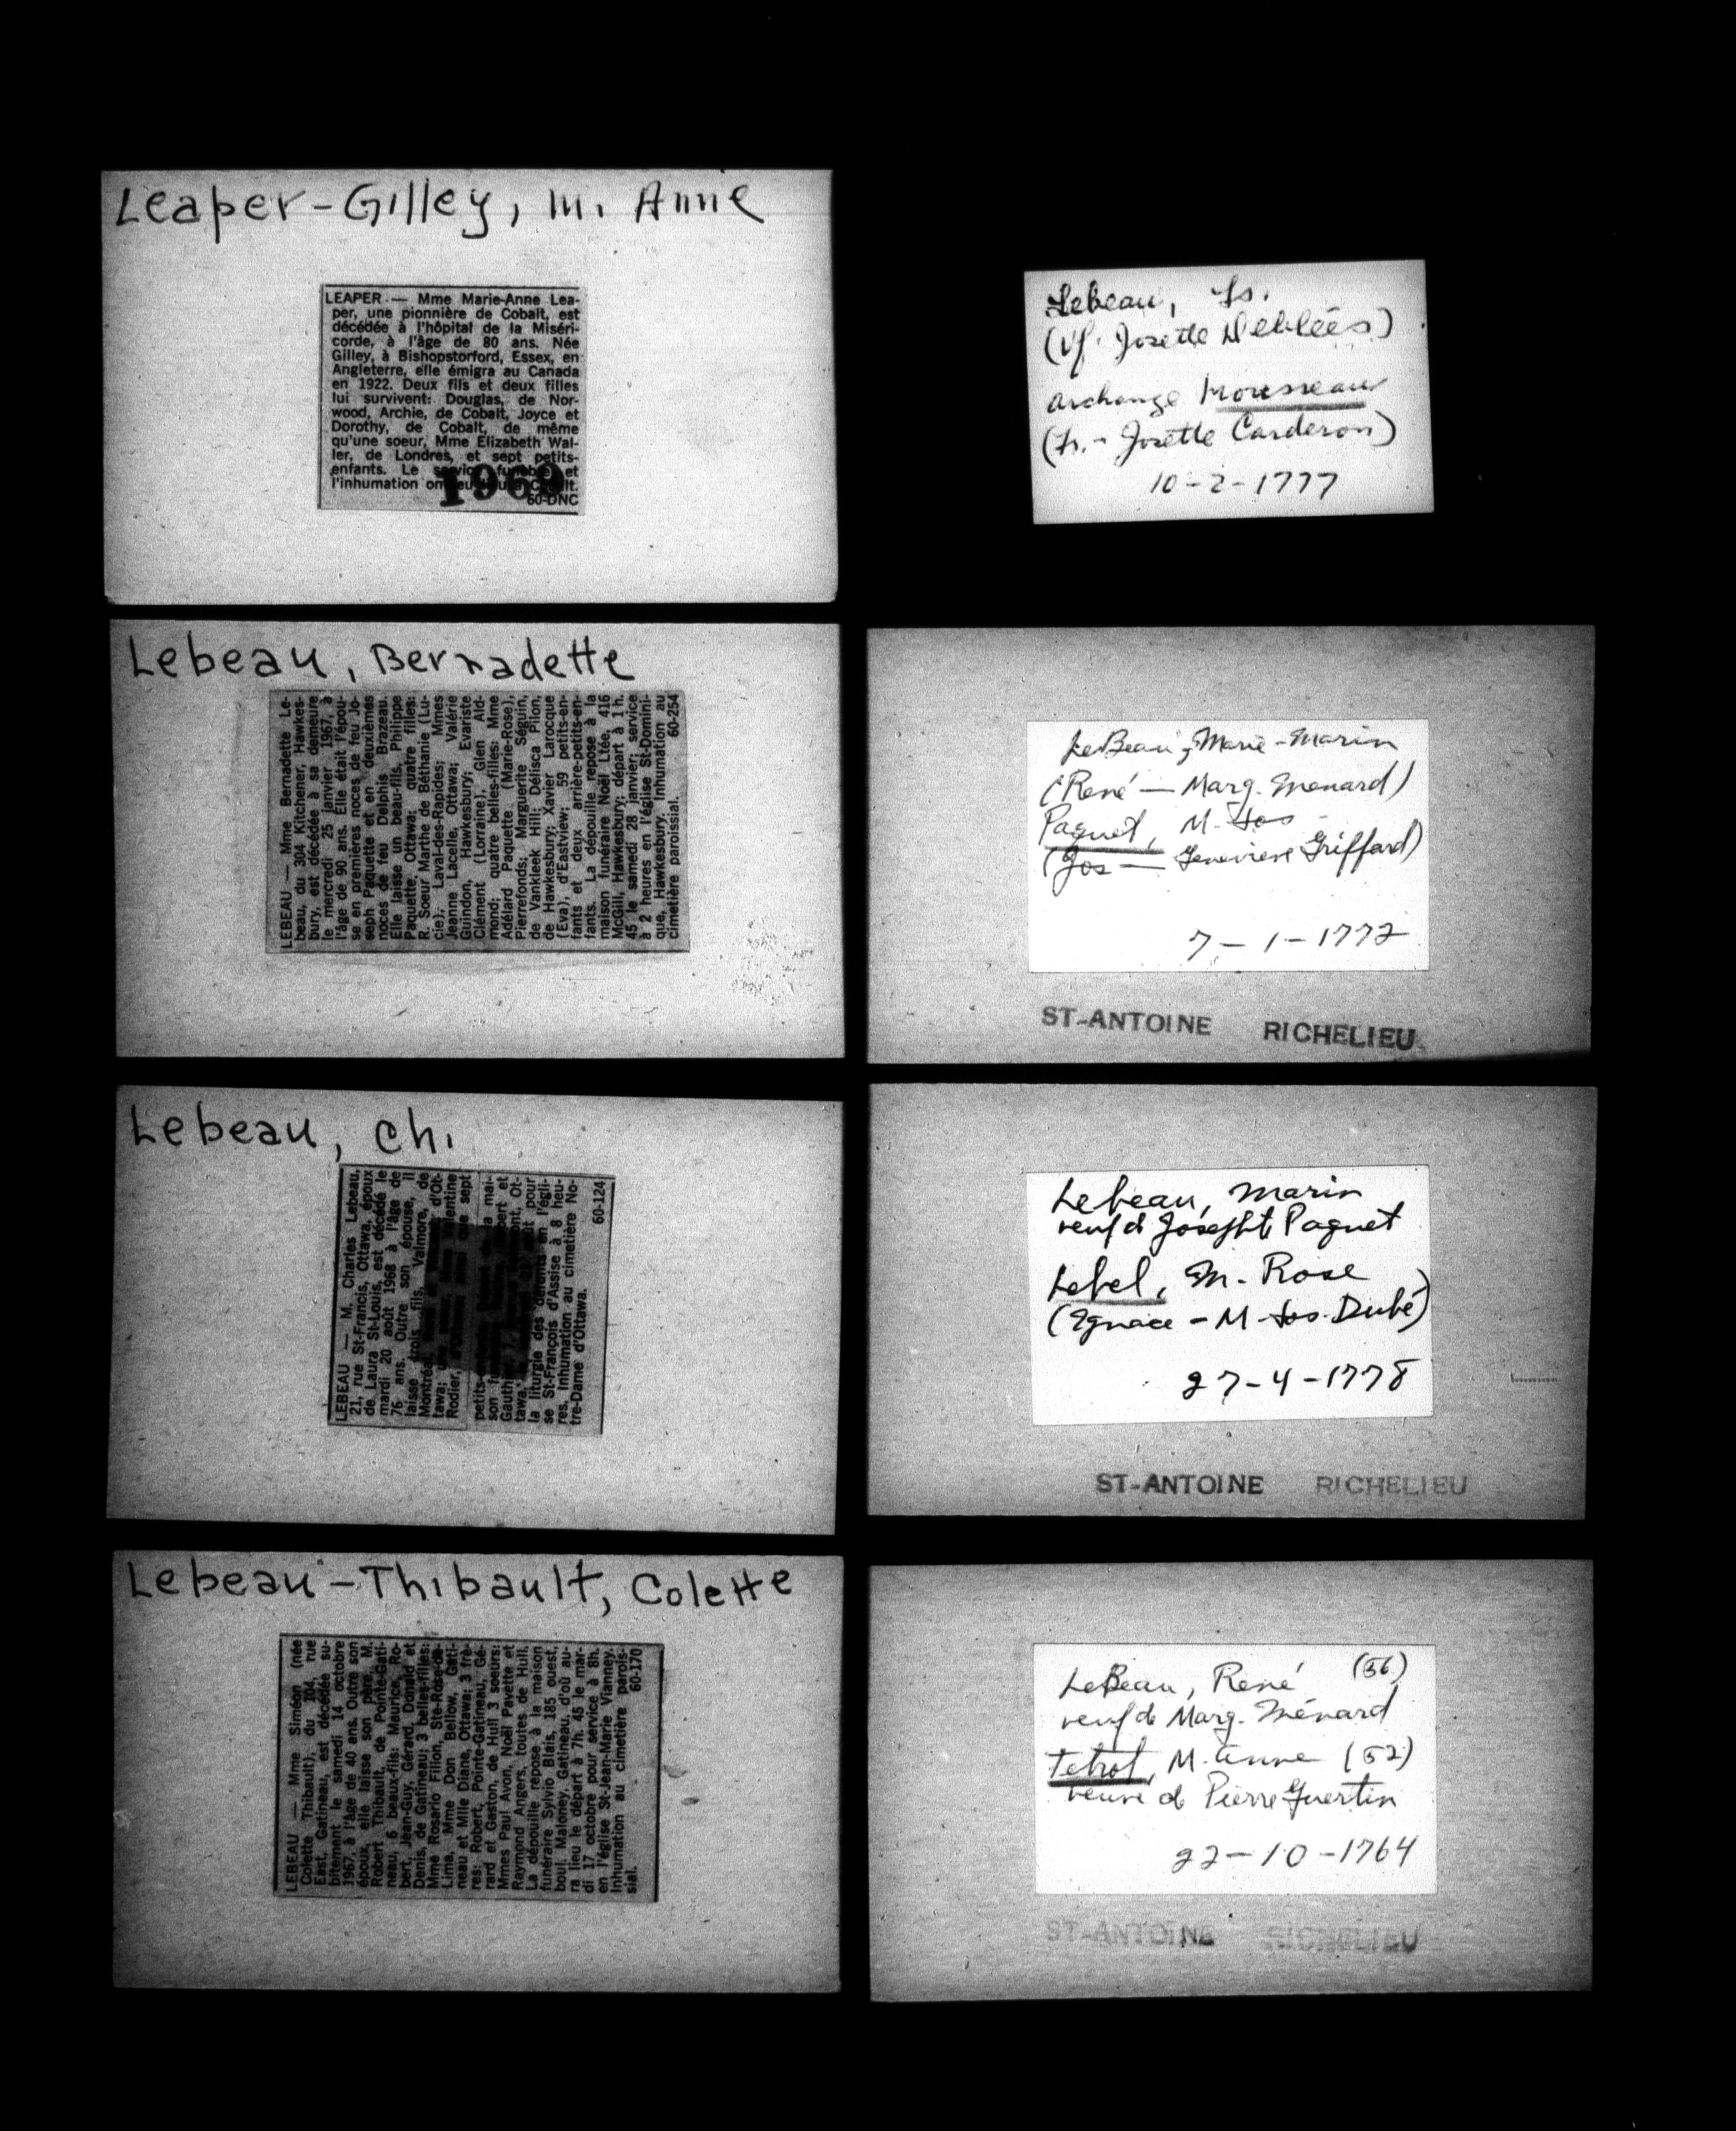 Leaper-Gilley, m. Annie
LEAPER — Mme Marie-Anne Lea-
per, une pionnière de Cobalt, est
décédée à l'hôpital de la Miséri-
corde, à l'âge de 80 ans. Née
Gilley, à Bishopstorford, Essex, en
Angleterre, elle émigra au Canada
en 1922. Deux fils et deux filles
lui survivent: Douglas, de Nor-
wood, Archie, de Cobalt, Joyce et
Dorothy, de Cobalt, de même
qu'une soeur, Mme Elizabeth Wal-
ler, de Londres, et sept petits-
enfants. Le service funèbre et
l'inhumation ont eu lieu à Cobalt.
60-DNC
1969
Lebeau, Fs.
(Vf. Josette Deblées)
Archange Mousseau
(Fs. - Josette Carderon)
10-2-1777
Lebeau, Bernadette
LEBEAU — Mme Bernadette Le-
beau, du 304 Kitchener, Hawkes-
bury, est décédée à sa demeure
le mercredi 25 janvier 1967, à
l'âge de 90 ans. Elle était l'épou-
se en premières noces de feu Jo-
seph Paquette et en deuxièmes
noces de feu Delphis Brazeau.
Elle laisse un beau-fils, Philippe
Paquette, Ottawa; quatre filles:
R. Soeur Marthe de Béthanie (Lu-
cie), Laval-des-Rapides; Mmes
Jeanne Lacelle, Ottawa; Valérie
Guindon, Hawkesbury; Evariste
Clément (Lorraine), Glen Ald-
mond; quatre belles-filles: Mme
Adélard Paquette (Marie-Rose),
Pierrefonds; Marguerite Séguin,
de Vankleek Hill; Délisca Pilon,
de Hawkesbury; Xavier Larocque
(Eva), d'Eastview; 59 petits-en-
fants et deux arrière-petits-en-
fants. La dépouille repose à la
maison funéraire Noël Ltée, 416
McGill, Hawkesbury; départ à 1 h.
45 le samedi 28 janvier; service
à 2 heures en l'église St-Domini-
que, Hawkesbury. Inhumation au
cimetière paroissial. 60-254
LeBeau, Marie-Marin
(René — Marg. Menard)
Paquet, M. Jos
(Jos — Genevieve Griffard)
7-1-1772
ST-ANTOINE RICHELIEU
Lebeau, Ch.
LEBEAU — M. Charles Lebeau,
21, rue St-Francis, Ottawa, époux
de Laura St-Louis, est décédé le
mardi 20 août 1968 à l'âge de
76 ans. Outre son épouse, il
laisse trois fils, Valmore, de
Montréal, d'Ot-
tawa; Valentine
Rodier, sept
petits- mai-
son et
Gauth Ot-
tawa, août pour
la liturgie des défunts en l'égli-
se St-François d'Assise à 8 heu-
res. Inhumation au cimetière No-
tre-Dame d'Ottawa.
60-124
Lebeau, Marin
veuf de Josephte Paquet
Lebel, M. Rose
(Egnace - M-Jos. Dubé)
27-4-1778
ST-ANTOINE RICHELIEU
Lebeau-Thibault, Colette
LEBEAU — Mme Siméon (née
Colette Thibault), du 104, rue
East, Gatineau, est décédée su-
bitement le samedi 14 octobre
1967, à l'âge de 40 ans. Outre son
époux, elle laisse son père, M.
Robert Thibault, de Pointe-Gati-
neau, 6 beaux-fils: Maurice, Ro-
bert, Jean-Guy, Gérard, Donald et
Denis, de Gatineau; 3 belles-filles:
Mme Rosario Filion, Ste-Rose-de-
Lima, Mme Don Bellow, Gati-
neau et Mlle Diane, Ottawa; 3 frè-
res: Robert, Pointe-Gatineau, Gé-
rard et Gaston, de Hull 3 soeurs:
Mmes Paul Avon, Noël Pavette et
Raymond Angers, toutes de Hull.
La dépouille repose à la maison
funéraire Sylvio Blais, 185 ouest,
boul. Maloney, Gatineau, d'où au-
ra lieu le départ à 7h. 45 le mar-
di 17 octobre pour service à 8h.
en l'église St-Jean-Marie Vianney.
Inhumation au cimetière parois-
sial. 60-170
LeBeau, René (56)
veuf de Marg. Ménard
Tetrot, M. Anne (52)
veuve de Pierre Guertin
22-10-1764
ST-ANTOINE RICHELIEU